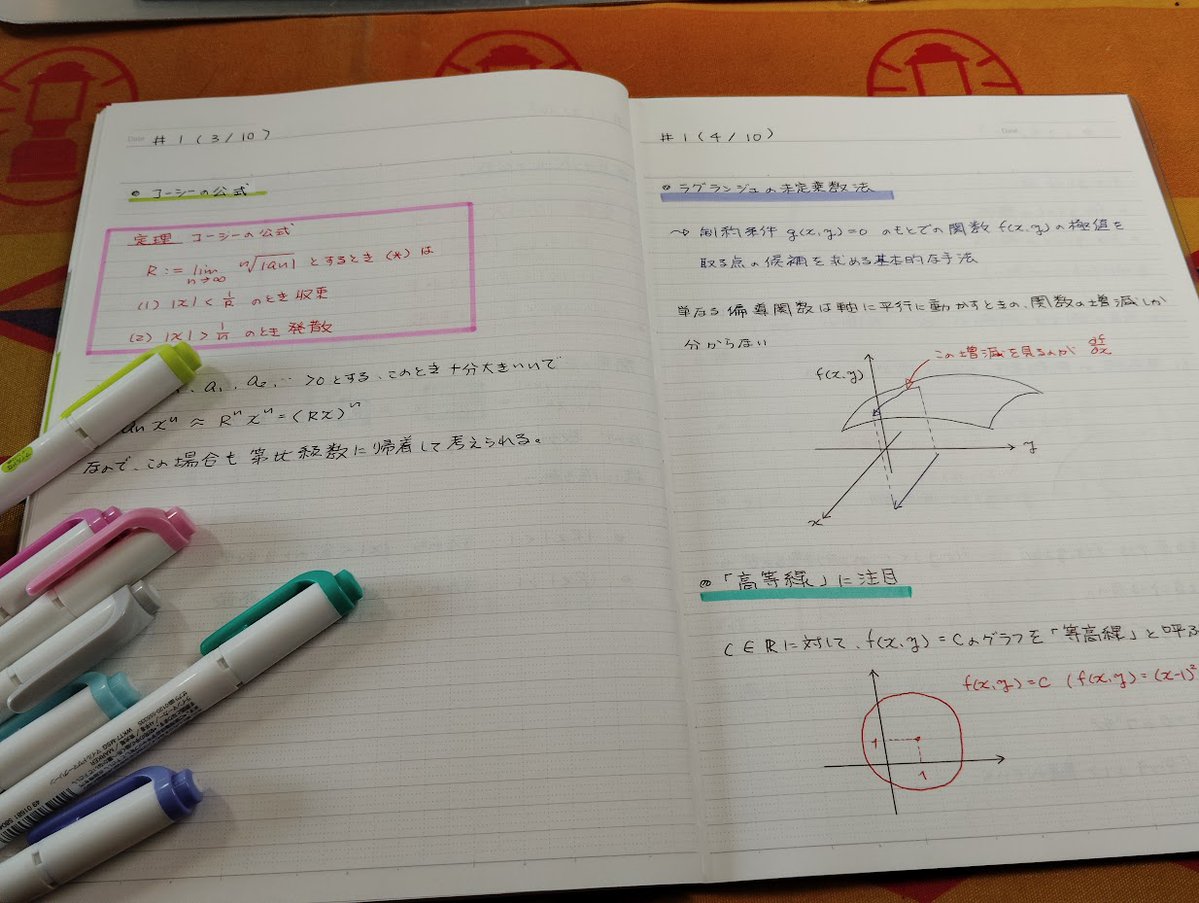 Date
# 1 (3/10)
コーシーの公式
定理 コーシーの公式
R := lim n→∞ ⁿ√|an| とするとき (*) は
(1) |x| < 1/R のとき収束
(2) |x| > 1/R のとき発散
a1, a2, … >0 とする、このとき十分大きいnで
an xⁿ ≈ Rⁿ xⁿ = (Rx)ⁿ
なので、この場合も 等比級数に帰着して考えられる。
Date
# 1 (4/10)
ラグランジュの未定乗数法
→ 制約条件 g(x,y)=0 のもとでの関数 f(x,y) の極値を
取る点の候補を求める基本的な手法
単なる偏導関数は軸に平行に動かすときの、関数の増減しか
分からない
この増減を見るのが df/dx
f(x,y)
y
x
「高等線」に注目
C ∈ R に対して、f(x,y) = C のグラフを「等高線」と呼ぶ
f(x,y) = C (f(x,y) = (x-1)²
1
1